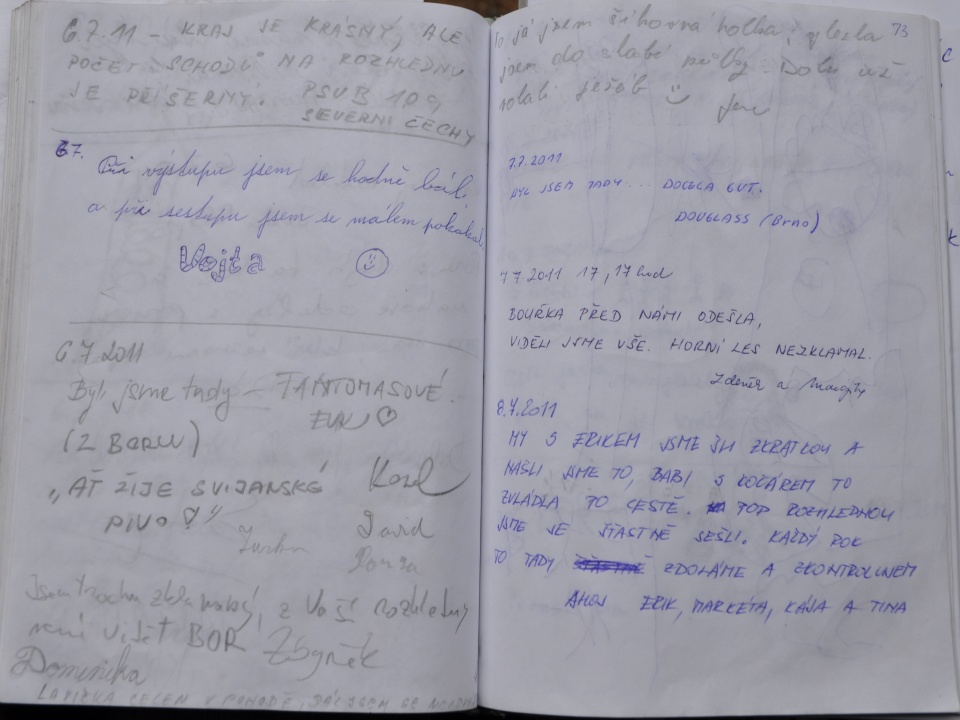 6.7.11 - KRAJ JE KRÁSNÝ, ALE
POČET SCHODŮ NA ROZHLEDNU
JE PŘÍŠERNÝ. PSUB 109
SEVERNÍ ČECHY
6.7. Při výstupu jsem se hodně bál
a při sestupu jsem se málem pokakal
Vojta
6.7.2011
Byli jsme tady - TANTOMASOVÉ
FUN ♡
(Z BORU)
Karel
„AŤ ŽIJE SVIJANSKÉ
PIVO!"
David
Jsem trochu, z Vaší rozhledny
není vidět BOR Zbyněk
Dominika
LAVIČKA CELEM V POHODĚ, DÁL JSEM SE
73
To já jsem šikovná holka, vylezla
jsem do slabé půlky. Dolů už
volali jeřáb ☺
7.7.2011
BYL JSEM TADY... DOCELA GUT.
DOUGLASS (Brno)
7.7.2011 17,17 hod
BOUŘKA PŘED NÁMI ODEŠLA,
VIDĚLI JSME VŠE. HORNÍ LES NEZKLAMAL.
Zdeněk a
8.7.2011
MY S ERIKEM JSME ŠLI ZKRATKOU A
NAŠLI JSME TO, BABI S KOČÁREM TO
ZVLÁDLA PO CESTĚ. POD ROZHLEDNOU
JSME SE ŠŤASTNĚ SEŠLI. KAŽDÝ ROK
TO TADY ZDOLÁME A ZKONTROLUJEM
AHOJ ERIK, MARKÉTA, KÁJA A TINA